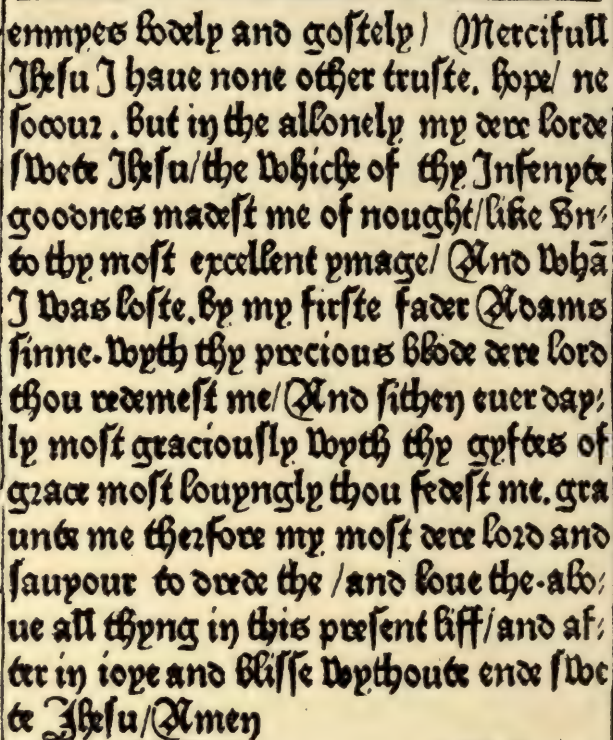 enmyes bodely and gostely / Mercifull
Jhesu I haue none other truste. hope/ ne
socour . But in the allonely my dere lorde
swete Jhesu/the whiche of thy Infenyte
goodnes madest me of nought/like vn⸗
to thy most excellent ymage/ And whā
I was loste.by my firste fader Adams
sinne. wyth thy precious blode dere lord
thou redemest me/And sithen euer day⸗
ly most graciously wyth thy gyftes of
grace most louyngly thou fedest me. gra
unte me therfore my most dere lord and
sauyour to drede the /and loue the.abo⸗
ue all thyng in this present liff/and af⸗
ter in ioye and blisse wythoute ende swe
te Jhesu/Amen